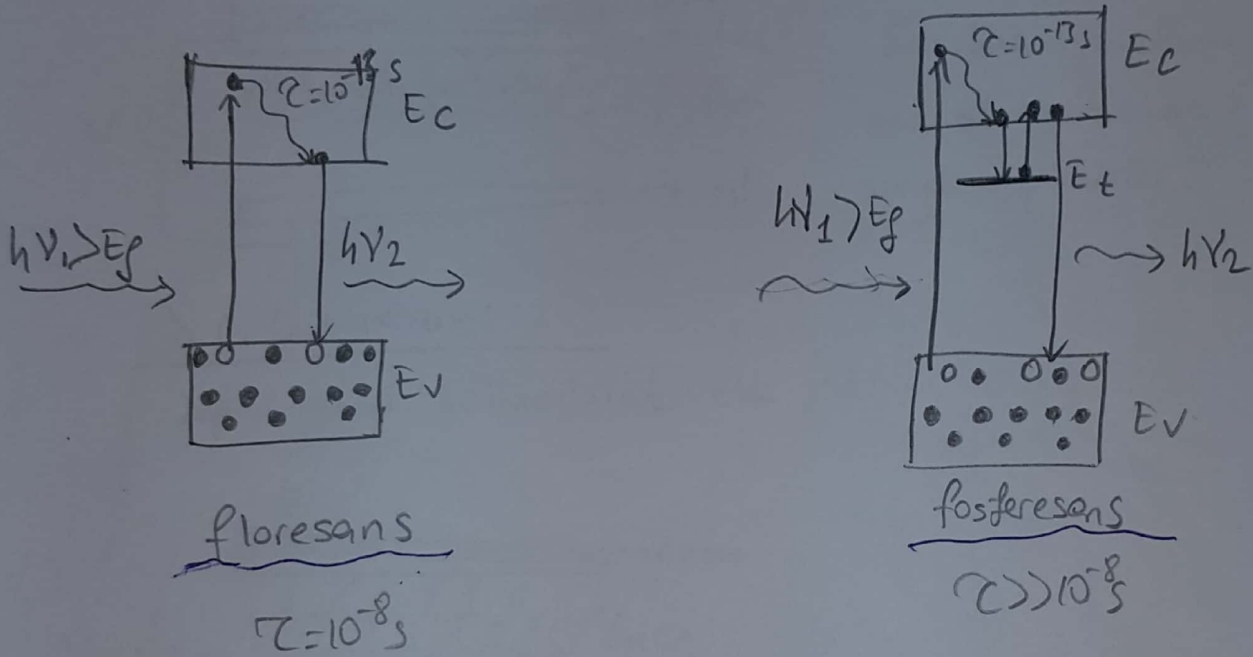 τ=10⁻¹³ s
Ec
hν₁>Eg
hν₂
Ev
floresans
τ=10⁻⁸s
τ=10⁻¹³s
Ec
Et
hν₁>Eg
hν₂
Ev
fosferesans
τ>>10⁻⁸s